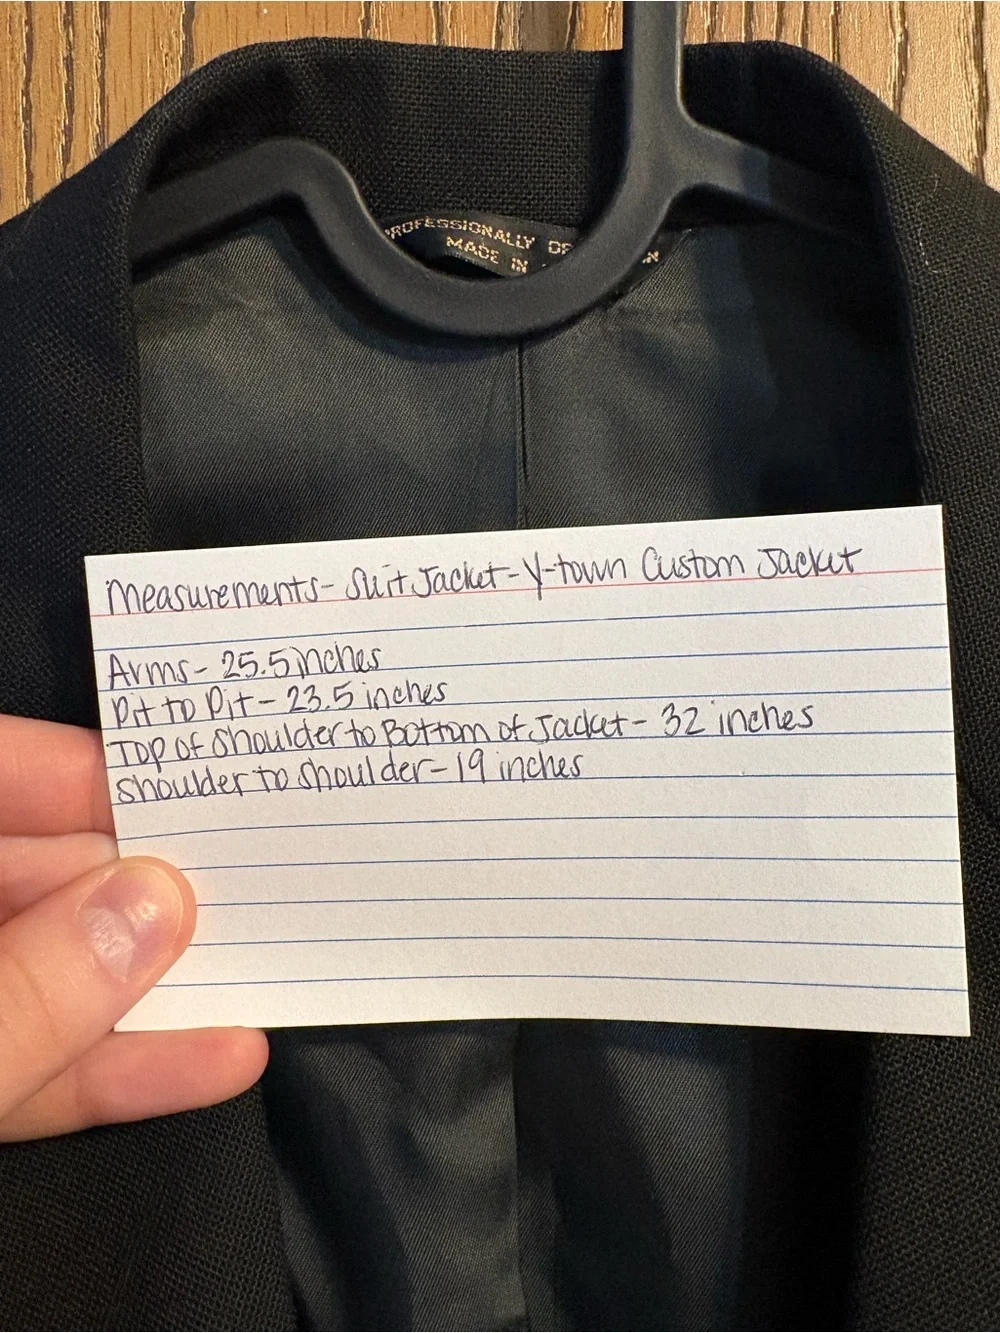 PROFESSIONALLY
MADE IN
Measurements- Suit Jacket-Y-town Custom Jacket
Arms- 25.5 inches
Pit to Pit- 23.5 inches
Top of Shoulder to Bottom of Jacket- 32 inches
Shoulder to Shoulder-19 inches